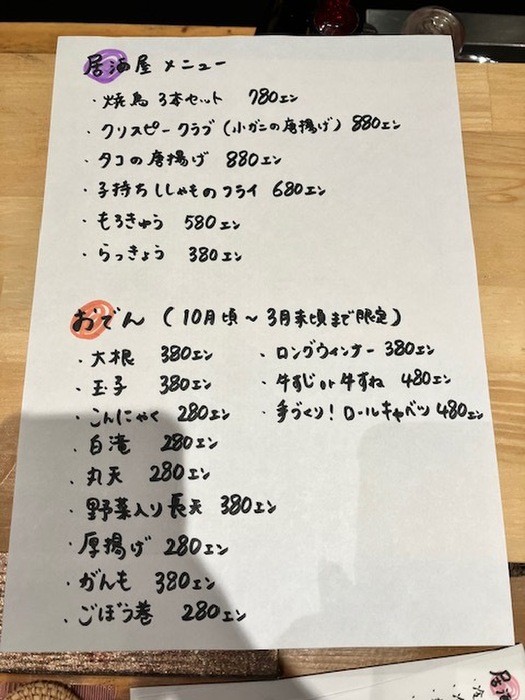 居酒屋 メニュー
・焼鳥 3本セット 780エン
・クリスピークラブ(小ガニの唐揚げ) 880エン
・タコの唐揚げ 880エン
・子持ちししゃものフライ 680エン
・もろきゅう 580エン
・らっきょう 380エン
おでん (10月頃～3月末頃まで限定)
・大根 380エン
・玉子 380エン
・こんにゃく 280エン
・白滝 280エン
・丸天 280エン
・野菜入り長天 380エン
・厚揚げ 280エン
・がんも 380エン
・ごぼう巻 280エン
・ロングウィンナー 380エン
・牛すじor牛すね 480エン
・手づくり!ロールキャベツ 480エン